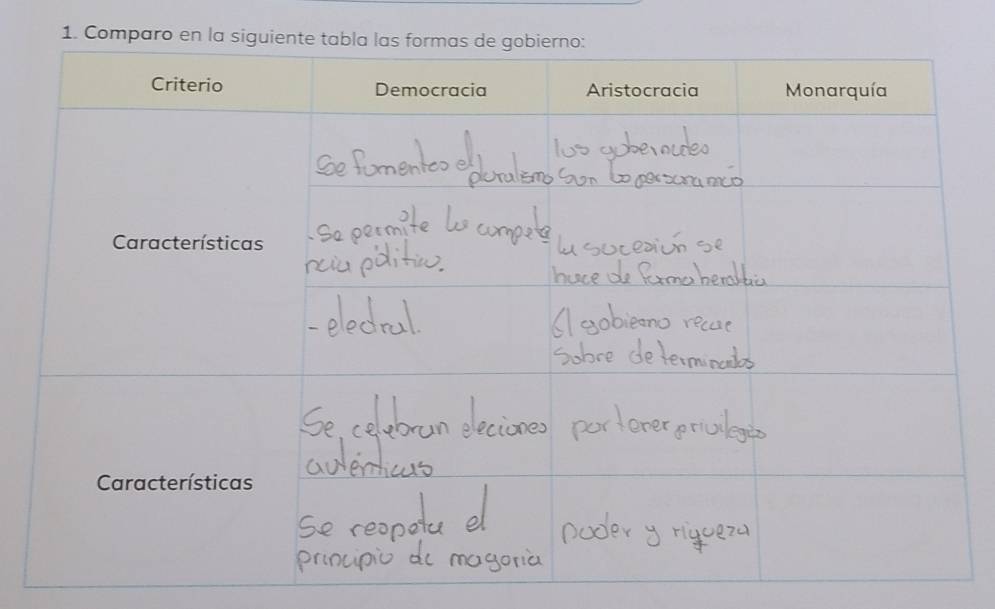 1. Comparo en la siguiente tabla las formas de gobierno:
Criterio Democracia Aristocracia Monarquía
Características
Se fomentes el
puralismo
- Se permite la compete
ncia politica.
- eledral.
los gobernades
son lo
la sucesión se
hace de forma
El gobierno recae
sobre determinados
Características
Se celebran eleciones
autenticas
Se respeta el
principio de magoria
por tener privilegios
poder y riqueza